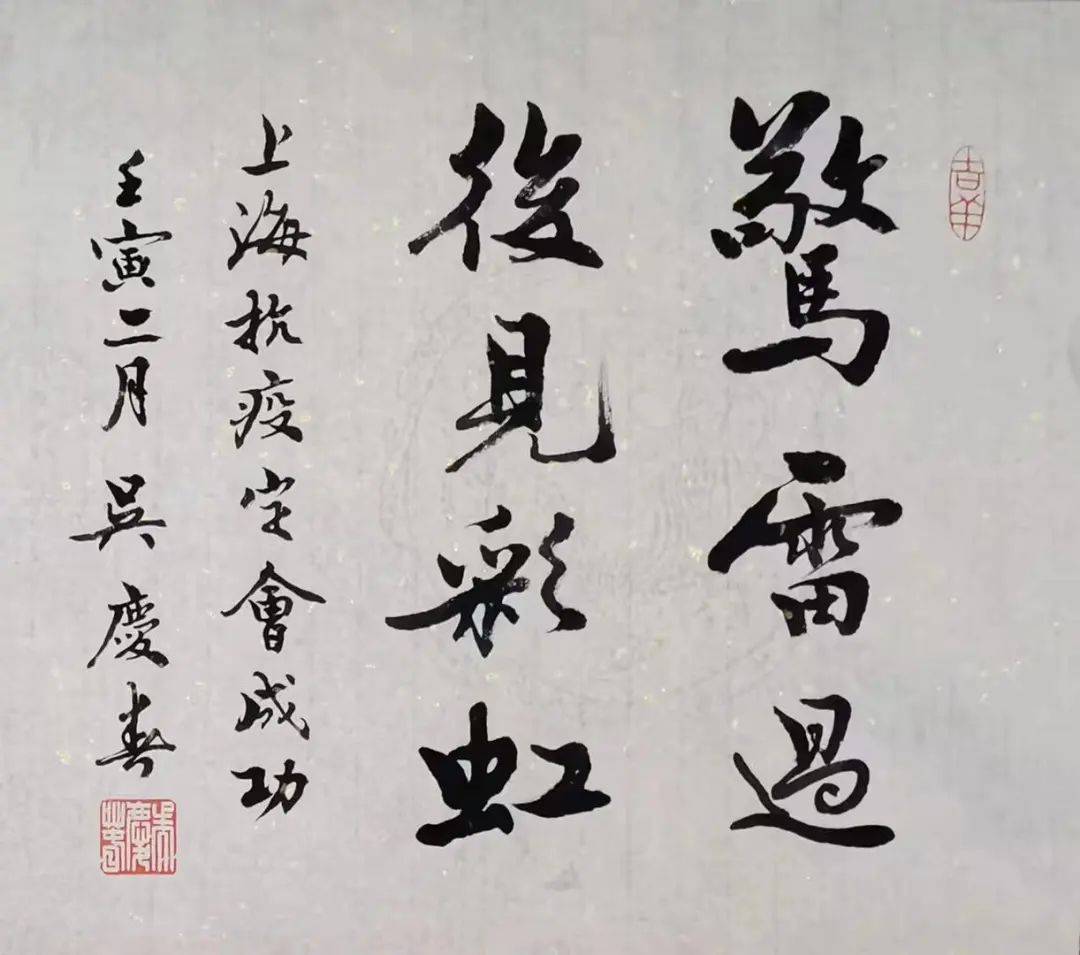 驚雷過
後見彩虹
上海抗疫定會成功
壬寅二月 吳慶春